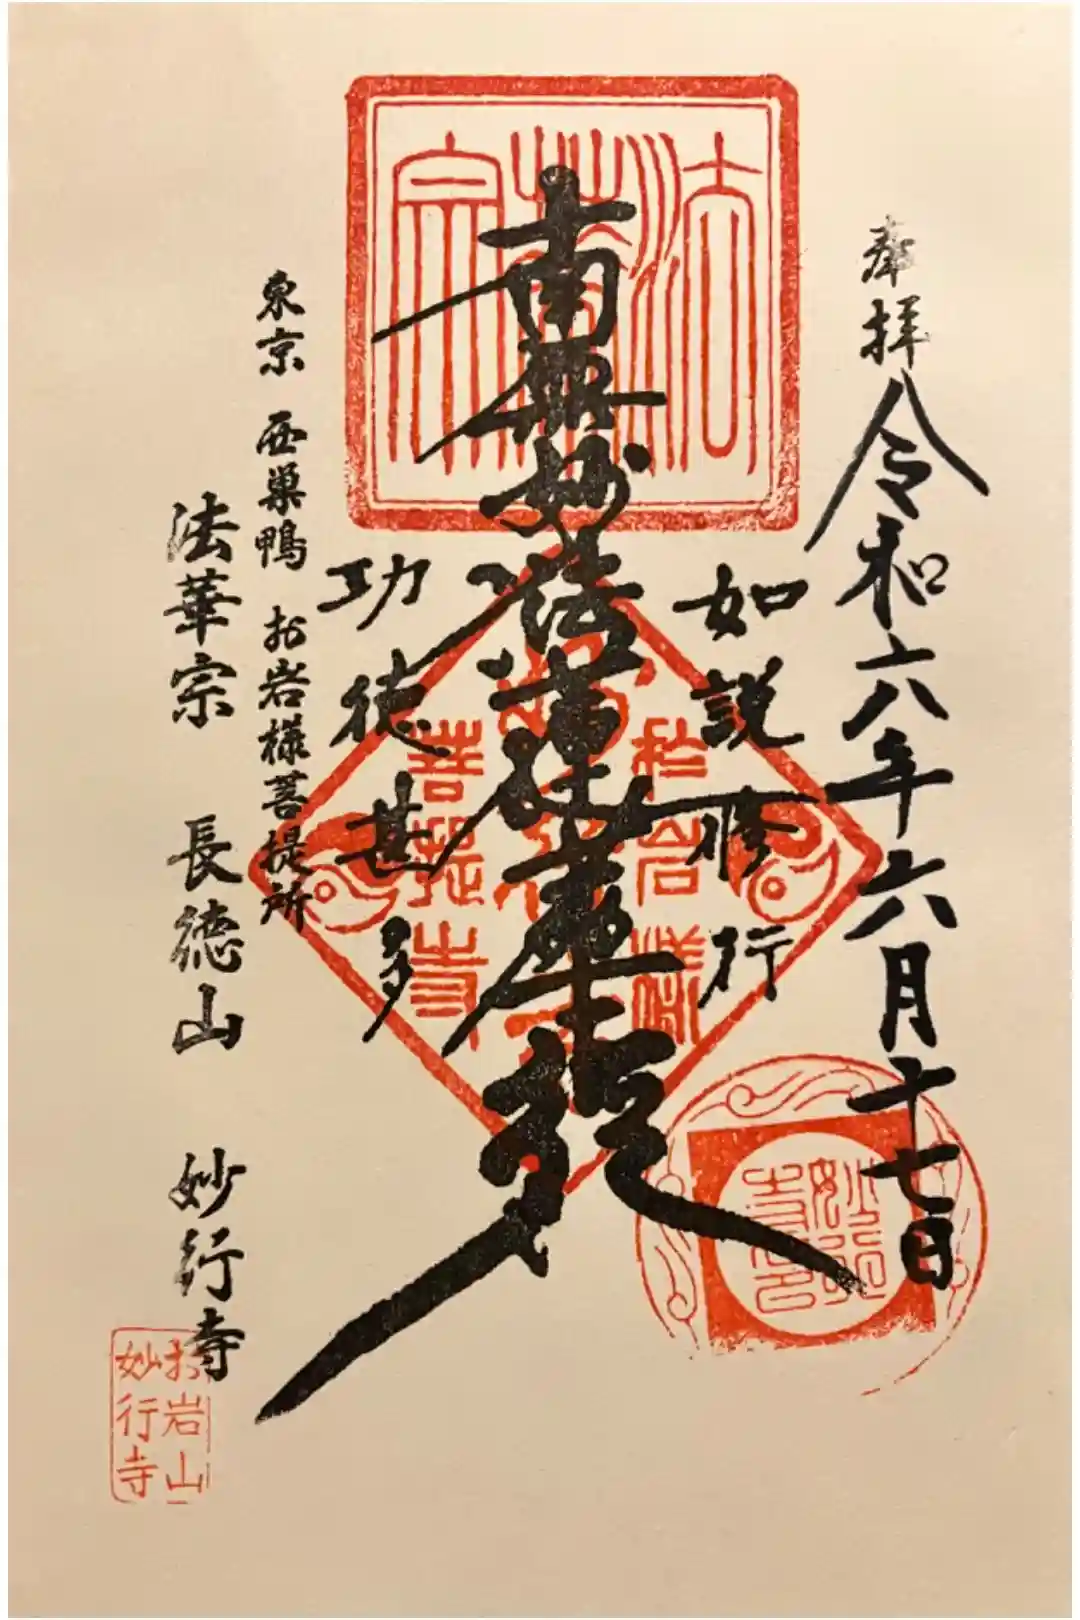 奉拝
令和六年六月十七日
如説修行
南無妙法蓮華経
功徳甚多
東京 西巣鴨 お岩様菩提所
法華宗 長徳山 妙行寺
法華宗
於岩様
菩提寺
妙行
寺印
お岩山
妙行寺